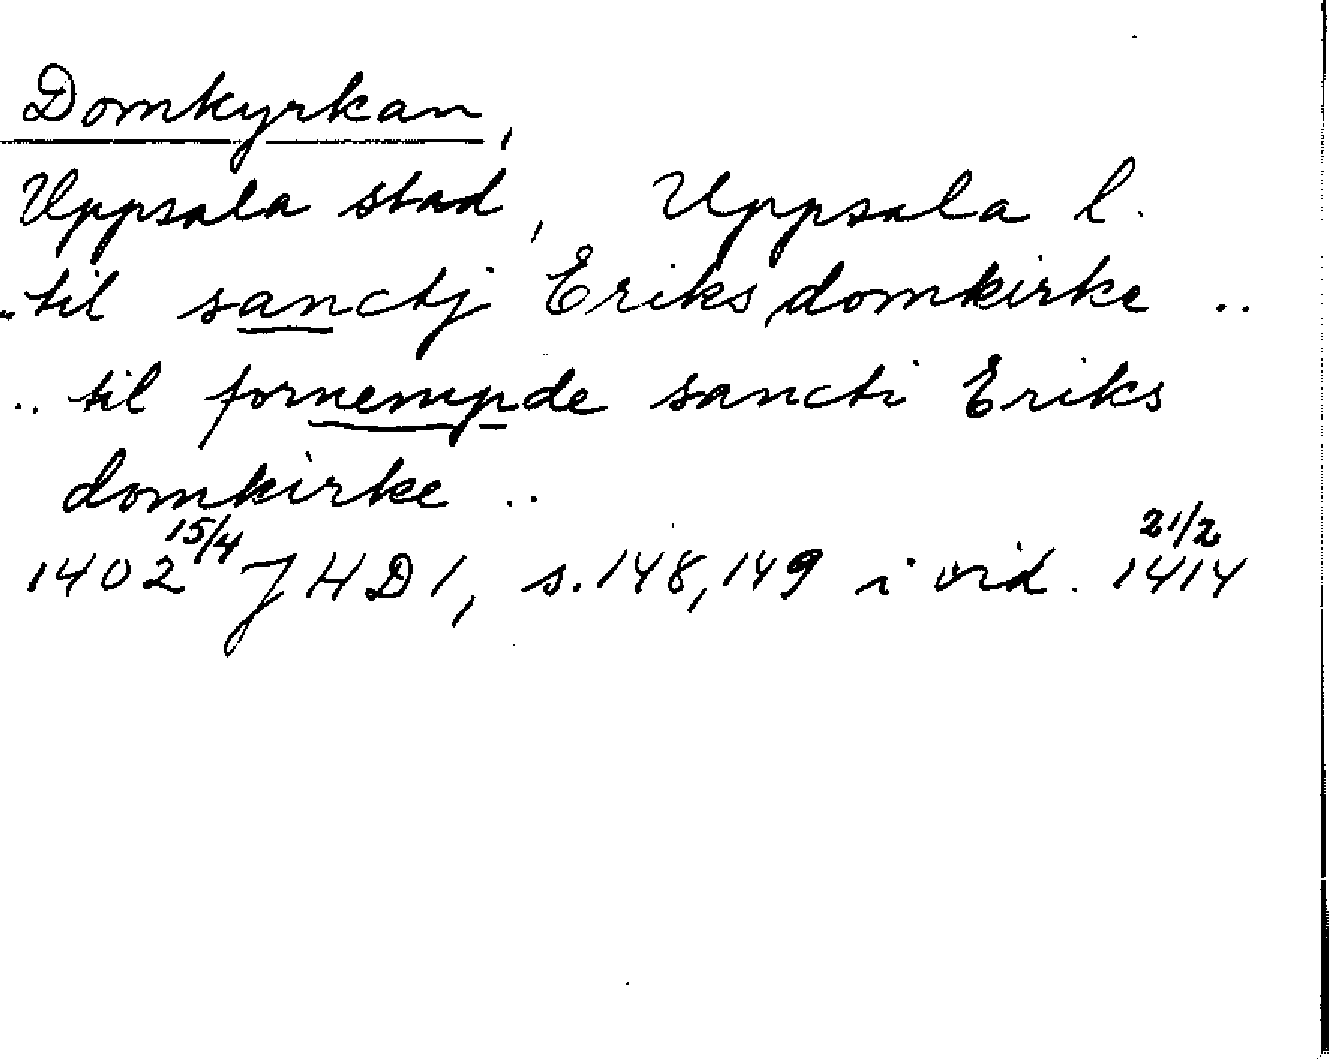 Domkyrkan,
Uppsala stad, Uppsala l.
..til sanctj Eriks domkirke ..
.. til fornempde sancti Eriks
domkirke ..
1402 15/4 JHD 1, s. 148, 149 i vid. 1414 21/2